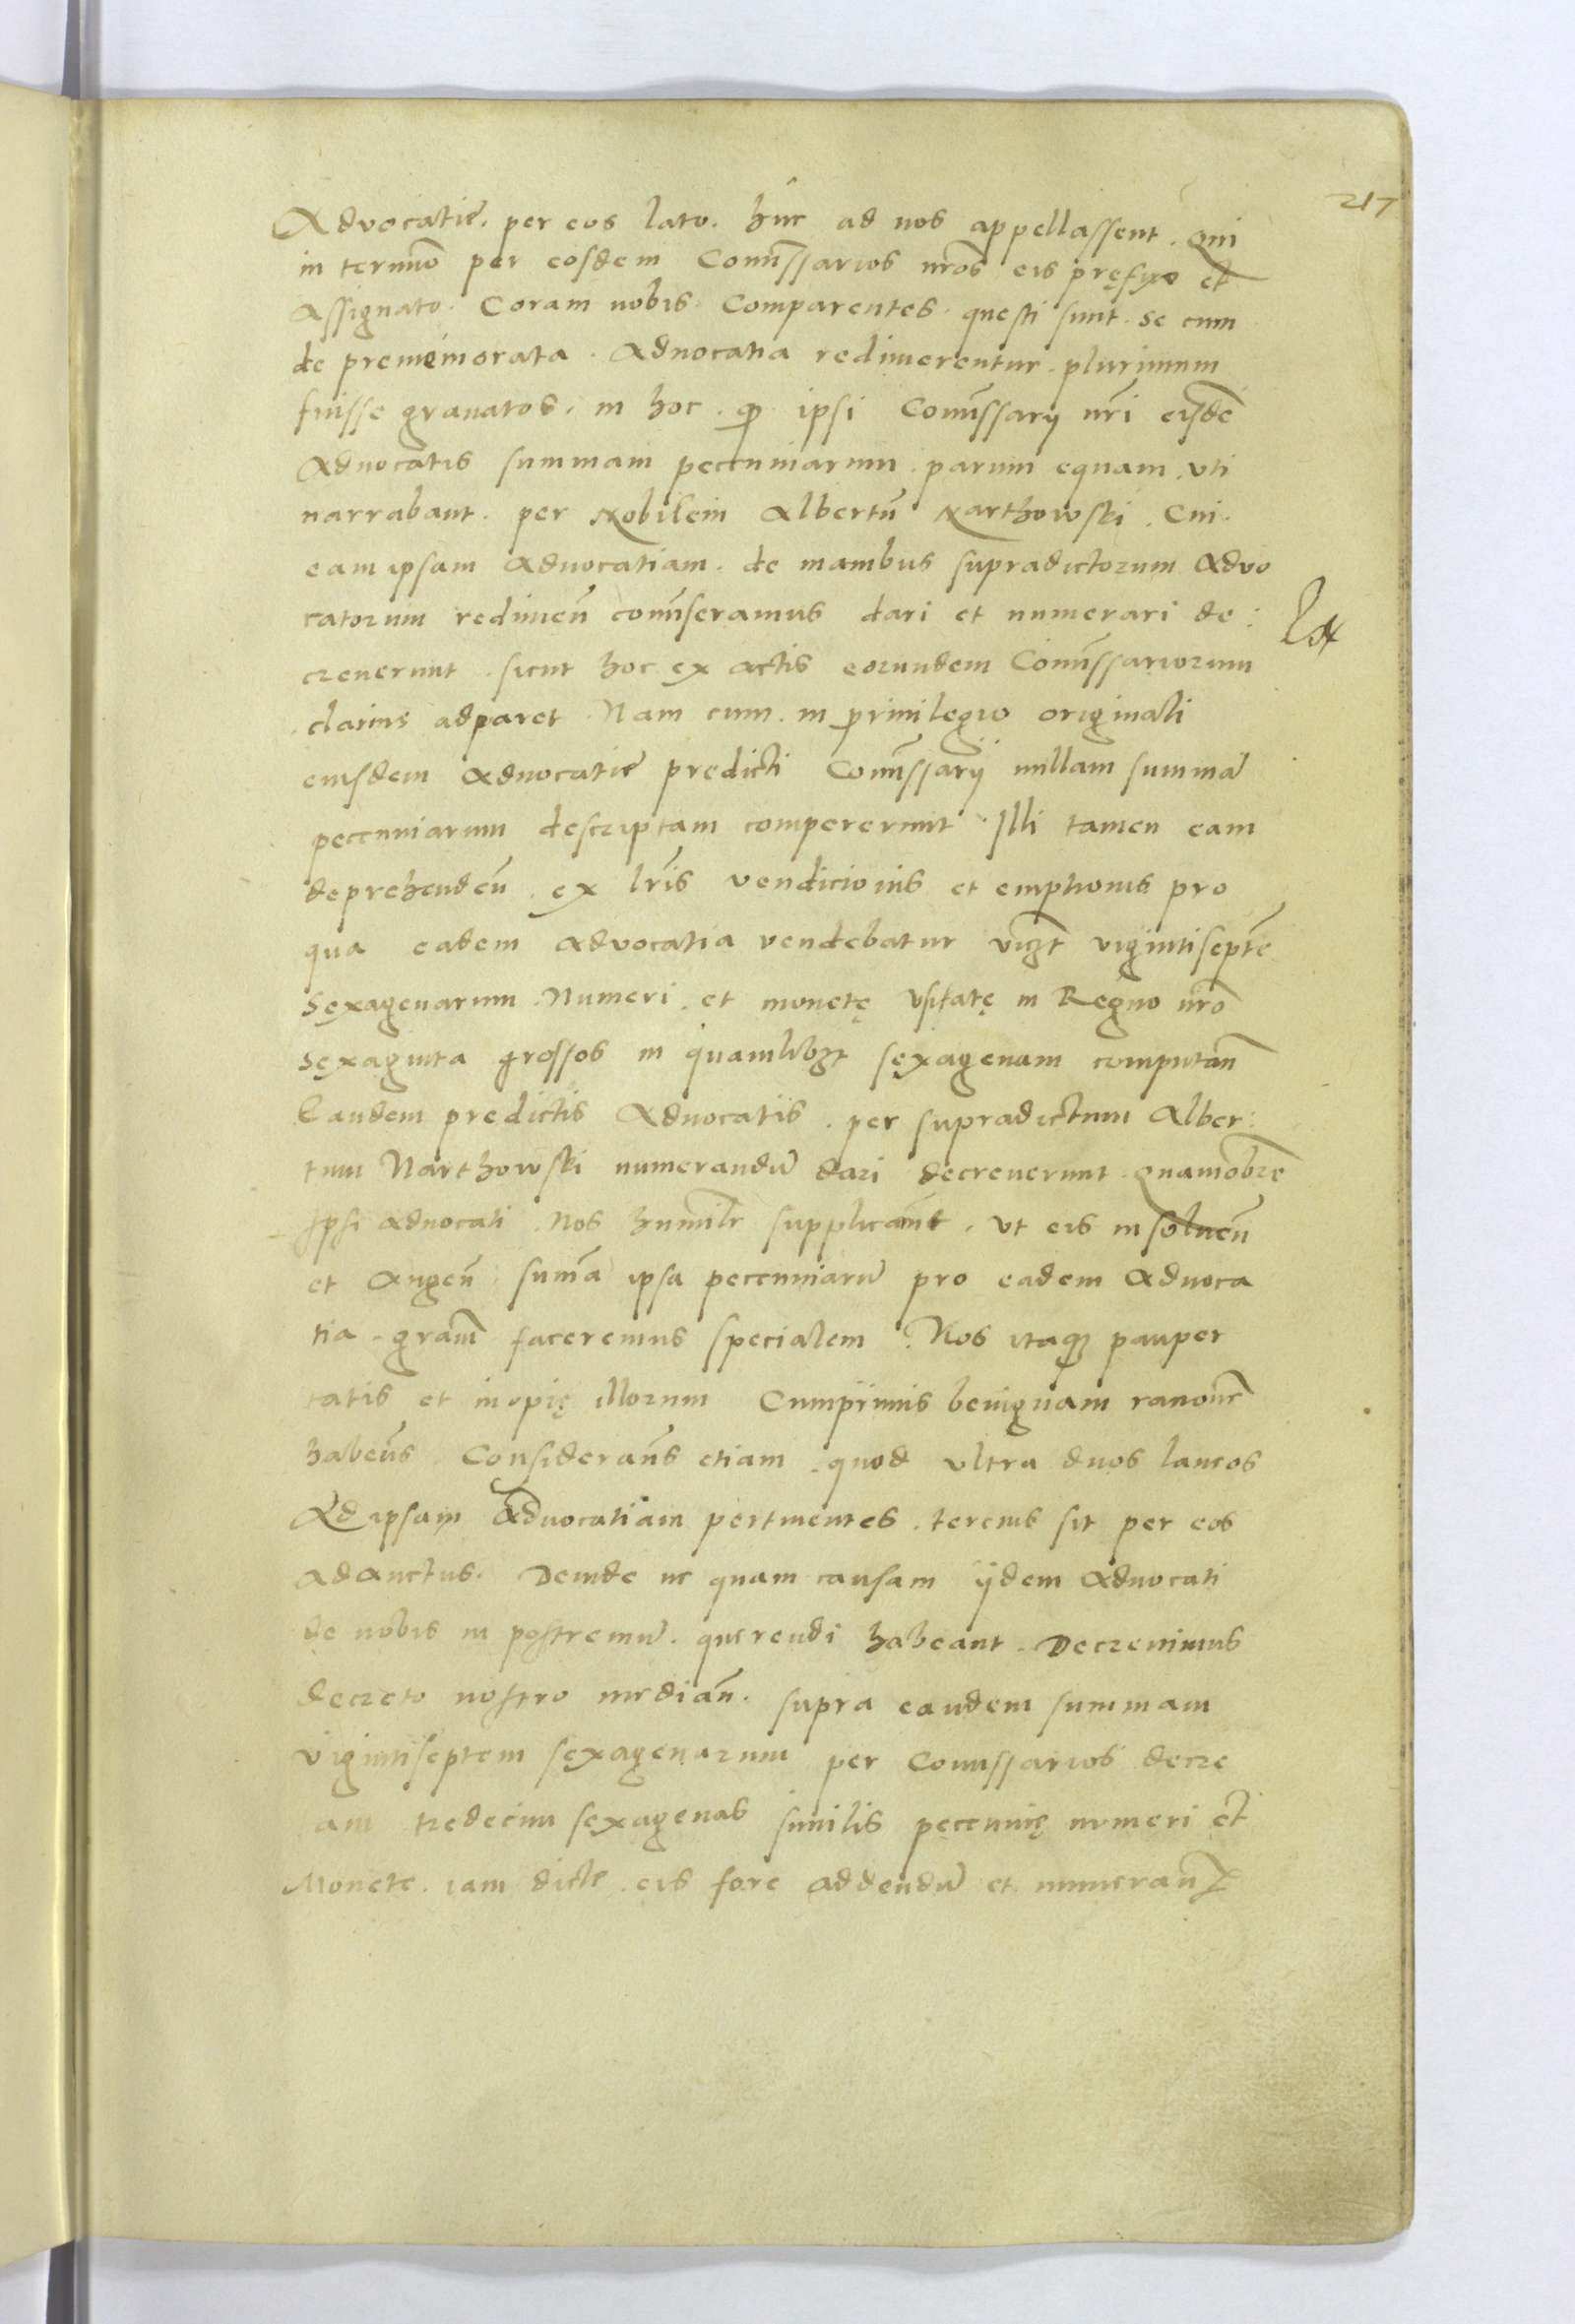 217
Advocatie. per eos lato. huc ad nos appellassent. Qui
in termīo per eosdem Com̄issarios nr̄os eis pręfixo et
Assignato. Coram nobis. Comparentes. questi sunt. se cum
de prememorata. Aduocatia redimerentur. plurimum
fuisse grauatos. in hoc. ꝙ ipsi Com̄issarij nr̄i eisdē
Aduocatis summam pecuniarum. parum equam. vti
narrabant. per Nobilem Albertū Narthowski. Cui.
eam ipsam Aduocatiam. de manibus supradictorum Aduo
catorum redimen̄ com̄iseramus dari et numerari de:
creuerunt. sicut hoc ex actis eorundem Com̄issariorum
clarius adparet. Nam cum. in priuilegio originali
eiusdem Aduocatie predicti Com̄issarij nullam summā
pecuniarum descriptam compererunt. Illi tamen eam
deprehenden̄. ex lr̄is vendicionis et emptionis pro
qua eadem Advocatia vendebatur vigᷓt vigintiseptē
Sexagenarum. Numeri. et monetę vsitatę in Regno nr̄o
Sęxaginta grossos in quamlibȝt sęxagenam computan̄
Eandem predictis Aduocatis. per supradictum Alber:
tum Narthowski numerandū dari decreuerunt. Quamobrē
Ipsi aduocati. Nos humilr̄ supplicaānt. vt eis in soluen̄
et Augen̄. sum̄a ipsa pecuniarū pro eadem Aduoca
tia. grām faceremus specialem. Nos itaqꝫ pauper
tatis et inopię illorum Cumprimis benignam racionē
haben̄s. Consideran̄s etiam. quod vltra duos laneos
Ad ipsam Aduocatiam pertinentes. tercius sit per eos
adauctus. Deinde ne quam causam ijdem Aduocati
de nobis in postremū. querendi habeant. Decreuimus
decreto nostro median̄. supra eandem summam
vigintiseptem sexagenarum per Comissarios decre
tam tredecim sexagenas similis pecunię numeri et
Monete. iam dicte. eis fore addendū et numeran̄